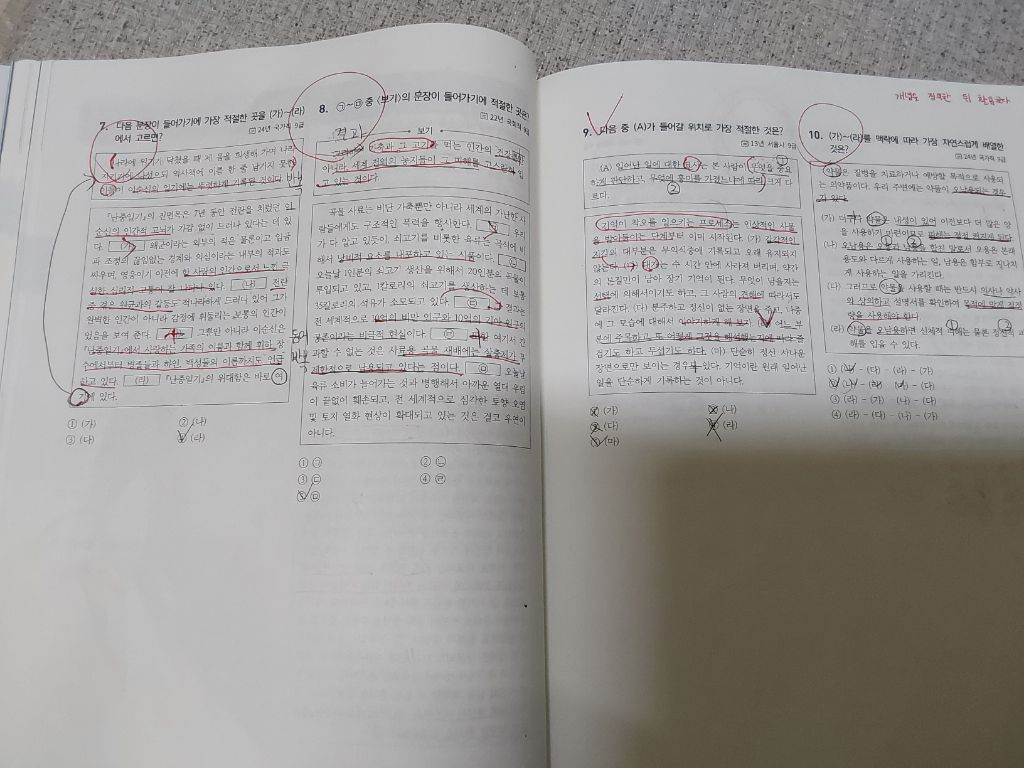 7. 다음 문장이 들어가기에 가장 적절한 곳을 (가)~(라)
에서 고르면?
24년 국가직 9급
나라에 위기가 닥쳤을 때 제 몸을 희생해 가며 나라
지키기에 나섰으되 역사책에 이름 한 줄 남기지 못한
이들이 이순신의 일기에는 뚜렷하게 기록된 것이다.
『난중일기』의 진면목은 7년 동안 전란을 치렀던 이
순신의 인간적 고뇌가 가감 없이 드러나 있다는 데 있
다. (가) 왜군이라는 외부의 적은 물론이고 임금
과 조정의 끊임없는 경계와 의심이라는 내부의 적과도
싸우며, 영웅이기 이전에 한 사람의 인간으로서 느낀 극
심한 심리적 고통이 잘 나타나 있다. (나) 전란
중 겪은 원균과의 갈등도 적나라하게 드러나 있어 그가
완벽한 인간이 아니라 감정에 휘둘리는 보통의 인간이
었음을 보여 준다. 그뿐만 아니라 이순신은
『난중일기』에서 사랑하는 가족의 이름과 함께 휘하 장
수에서부터 병졸들과 하인, 백성들의 이름까지도 언급
하고 있다. (라) 『난중일기』의 위대함은 바로 여
기에 있다.
① (가) ② (나)
③ (다) ④ (라)
8. ㉠~㉤ 중 <보기>의 문장이 들어가기에 적절한 곳은?
22년 국회직 9급
보기
가축과 그 고기를 먹는 인간의 건강뿐만
아니라, 세계 전역의 농지들이 그 피해를 고스란히 입
고 있는 것이다.
곡물 사료는 비단 가축뿐만 아니라 세계의 가난한 사
람들에게도 구조적인 폭력을 행사한다. ㉠ 우리
가 다 알고 있듯이, 쇠고기를 비롯한 육류는 곡식에 비
해서 낭비적 요소를 내포하고 있는 식품이다. ㉡
오늘날 1인분의 쇠고기 생산을 위해서 20인분의 곡물이
투입되고 있고, 1칼로리의 쇠고기를 생산하는 데 보통
35칼로리의 석유가 소모되고 있다. ㉢ 그 결과는
전 세계적으로 10억의 비만 인구와 10억의 기아 인구의
공존이라는 비극적 현실이다. 여기서 간
과할 수 없는 것은 사료용 곡물 재배에는 살충제가 무
제한적으로 남용되고 있다는 점이다. ㉤ 오늘날
육류 소비가 늘어가는 것과 병행해서 아까운 열대 우림
이 끝없이 훼손되고, 전 세계적으로 심각한 토양 오염
및 토지 열화 현상이 확대되고 있는 것은 결코 우연이
아니다.
① ㉠ ② ㉡
③ ㉢ ④ ㉣
⑤ ㉤
9. 다음 중 (A)가 들어갈 위치로 가장 적절한 것은?
13년 서울시 9급
(A) 일어난 일에 대한 묘사는 본 사람이 무엇을 중요
하게 판단하고, 무엇에 흥미를 가졌느냐에 따라 크게 다
르다.
기억이 착오를 일으키는 프로세스는 인상적인 사물
을 받아들이는 단계부터 이미 시작된다. (가) 감각적인
지각의 대부분은 무의식중에 기록되고 오래 유지되지
않는다. (나) 대개는 수 시간 안에 사라져 버리며, 약간
의 본질만이 남아 장기 기억이 된다. 무엇이 남을지는
선택에 의해서이기도 하고, 그 사람의 견해에 따라서도
달라진다. (다) 분주하고 정신이 없는 장면을 주고, 나중
에 그 모습에 대해서 이야기하게 해 보자. (라) 어느 부
분에 주목하고, 또 어떻게 그것을 해석했는지에 따라 즐
겁기도 하고 무섭기도 하다. (마) 단순히 정신 사나운
장면으로만 보이는 경우도 있다. 기억이란 원래 일어난
일을 단순하게 기록하는 것이 아니다.
① (가) ② (나)
③ (다) ④ (라)
⑤ (마)
개념을 정독한 뒤
10. (가)~(라)를 맥락에 따라 가장 자연스럽게 배열한
것은?
24년 국가직 9급
약물은 질병을 치료하거나 예방할 목적으로 사용되
는 의약품이다. 우리 주변에는 약물이 오남용되는 경우
가 있다.
(가) 더구나 약물은 내성이 있어 이전보다 더 많은 양
을 사용하기 마련이므로 피해는 점점 커지게 된다.
(나) 오남용은 오용과 남용을 합친 말로서 오용은 본래
용도와 다르게 사용하는 일, 남용은 함부로 지나치
게 사용하는 일을 가리킨다.
(다) 그러므로 약물을 사용할 때는 반드시 의사나 약사
와 상의하고 설명서를 확인하여 목적에 맞게 적정
량을 사용해야 한다.
(라) 약물을 오남용하면 신체적 피해는 물론 정신적 피
해를 입을 수 있다.
① (나) - (다) - (라) - (가)
② (나) - (라) - (가) - (다)
③ (라) - (가) - (나) - (다)
④ (라) - (다) - (나) - (가)